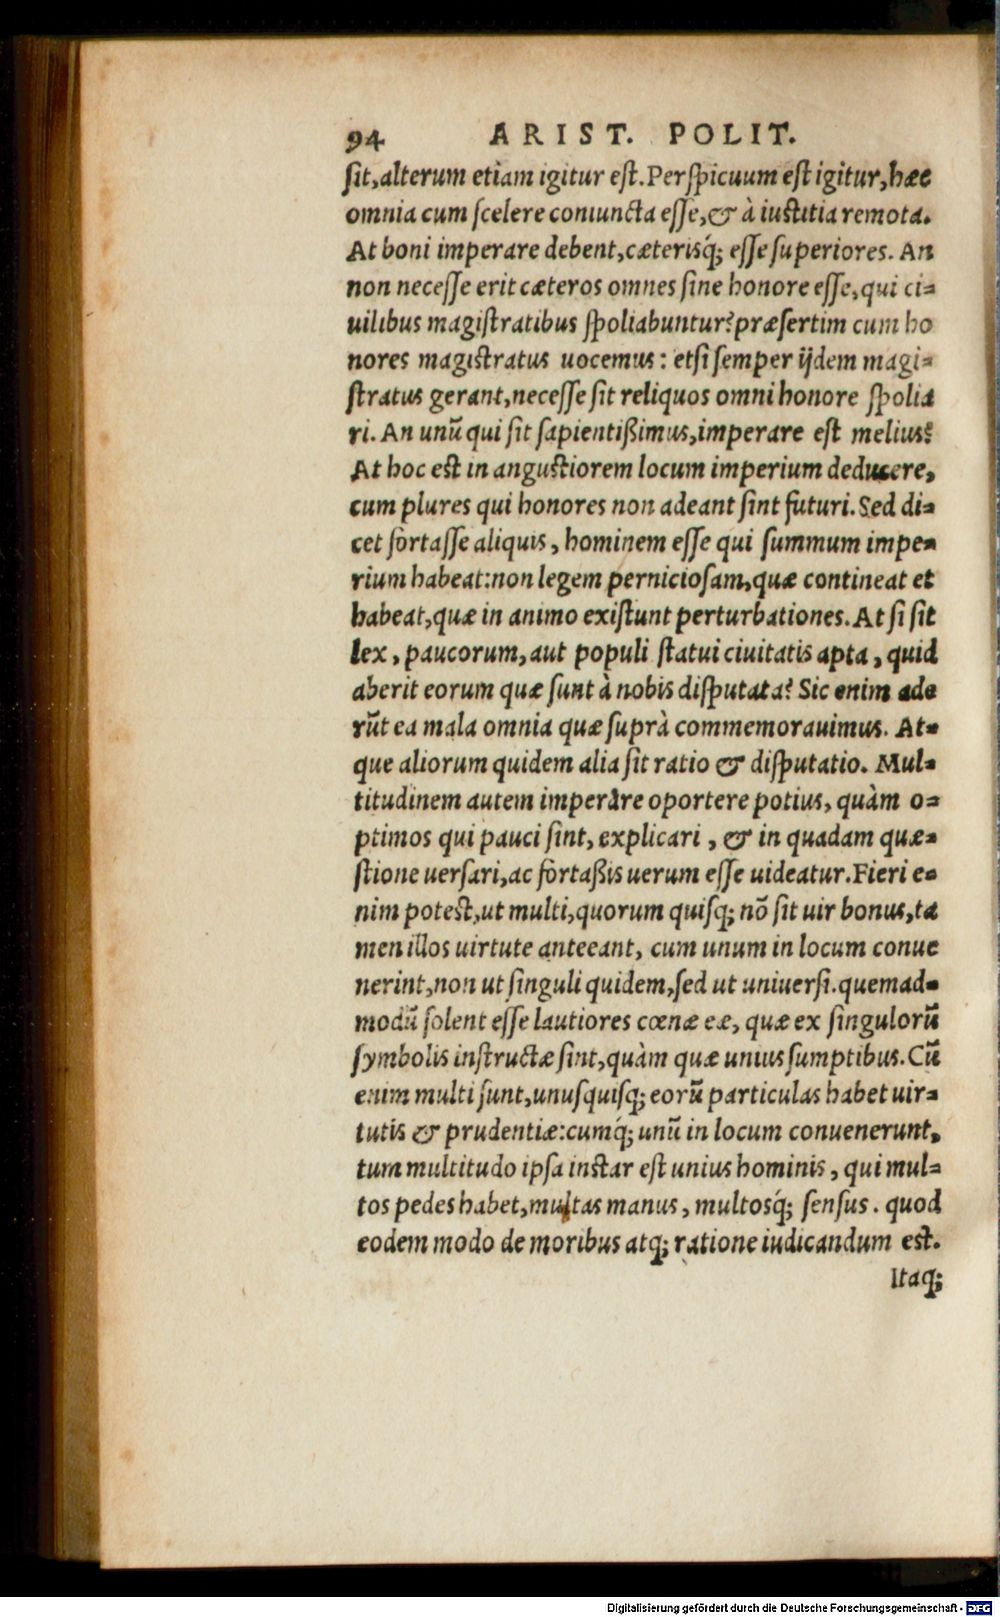 94 ARIST. POLIT.
sit, alterum etiam igitur est. Perspicuum est igitur, hæc
omnia cum scelere coniuncta esse, & à iustitia remota.
At boni imperare debent, cæterisq́; esse superiores. An
non necesse erit cæteros omnes sine honore esse, qui ci-
uilibus magistratibus spoliabuntur? præsertim cum ho
nores magistratus uocemus: etsi semper ijdem magi-
stratus gerant, necesse sit reliquos omni honore spolia
ri. An unũ qui sit sapientißimus, imperare est melius?
At hoc est in angustiorem locum imperium deducere,
cum plures qui honores non adeant sint futuri. Sed di-
cet fortasse aliquis, hominem esse qui summum impe-
rium habeat: non legem perniciosam, quæ contineat et
habeat, quæ in animo existunt perturbationes. At si sit
lex, paucorum, aut populi statui ciuitatis apta, quid
aberit eorum quæ sunt à nobis disputata? Sic enim ade
rũt ea mala omnia quæ suprà commemorauimus. At-
que aliorum quidem alia sit ratio & disputatio. Mul-
titudinem autem imperare oportere potius, quàm o-
ptimos qui pauci sint, explicari, & in quadam quæ-
stione uersari, ac fortaßis uerum esse uideatur. Fieri e-
nim potest, ut multi, quorum quisq; nõ sit uir bonus, ta
men illos uirtute anteeant, cum unum in locum conue
nerint, non ut singuli quidem, sed ut uniuersi. quemad-
modũ solent esse lautiores cœnæ eæ, quæ ex singulorũ
symbolis instructæ sint, quàm quæ unius sumptibus. Cũ
enim multi sunt, unusquisq; eorũ particulas habet uir-
tutis & prudentiæ: cumq́; unũ in locum conuenerunt,
tum multitudo ipsa instar est unius hominis, qui mul-
tos pedes habet, multas manus, multosq́; sensus. quod
eodem modo de moribus atq; ratione iudicandum est.
Itaq;
Digitalisierung gefördert durch die Deutsche Forschungsgemeinschaft - DFG